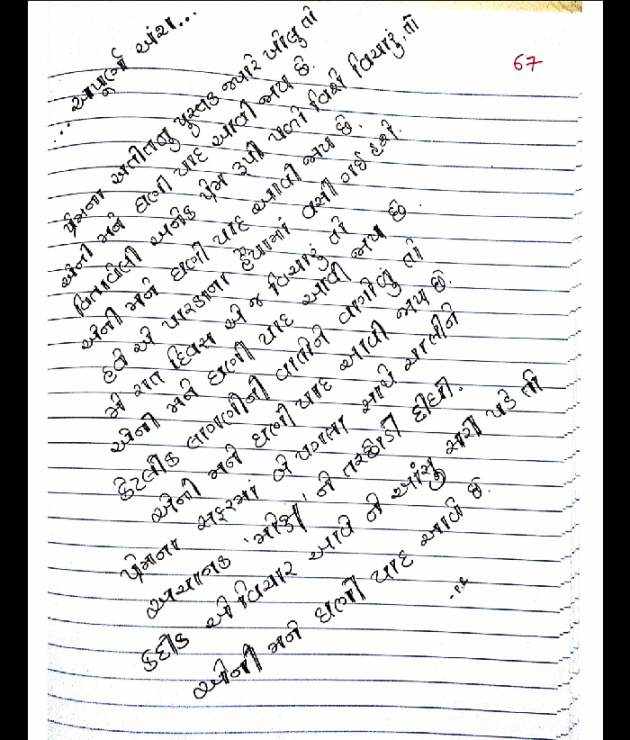 67
... અપૂર્ણ અંશ...
પ્રેમના અતીતનું પુસ્તક જ્યારે ખોલું તો
એની મને ઘણી યાદ આવી જાય છે.
વિતાવેલી અનેક પ્રેમ રૂપી પળો વિશે વિચારું તો
એની મને ઘણી યાદ આવી જાય છે.
હવે એ પારકાના હૈયામાં વસી ગઈ હશે.
મેં રાત દિવસ એ જ વિચારું તો
એની મને ઘણી યાદ આવી જાય છે.
કેટલીક લાગણીની વાતોને વાગોળું તો
એની મને ઘણી યાદ આવી જાય છે.
પ્રેમના સફરમાં બે પગલા સાથે ચાલીને
અચાનક 'મીકી' ને તરછોડી દીધી.
કદીક એ વિચાર આવે ને આંસુ સરી પડે તો
એની મને ઘણી યાદ આવે છે.